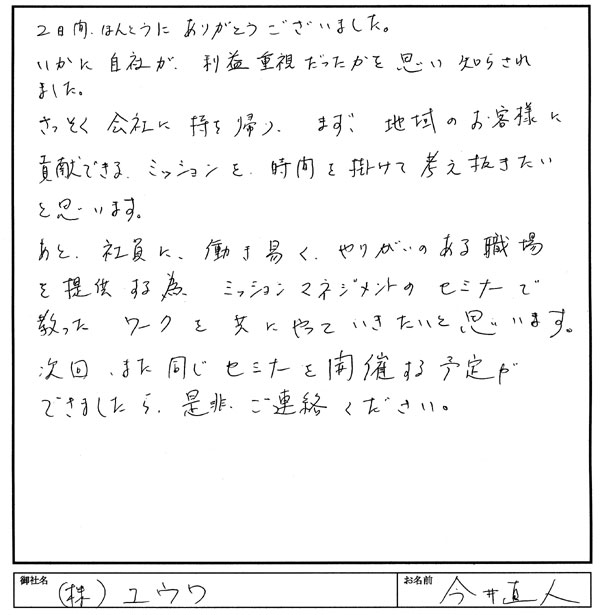 2日間、ほんとうにありがとうございました。
いかに自社が、利益重視だったかを思い知らされ
ました。
さっそく会社に持ち帰り、まず、地域のお客様に
貢献できる、ミッションを、時間を掛けて考え抜きたい
と思います。
あと、社員に、働き易く、やりがいのある職場
を提供する為、ミッションマネジメントのセミナーで
教った ワークを共にやっていきたいと思います。
次回、また同じセミナーを開催する予定が
できましたら、是非、ご連絡ください。
御社名 (株)ユウワ お名前 今井直人